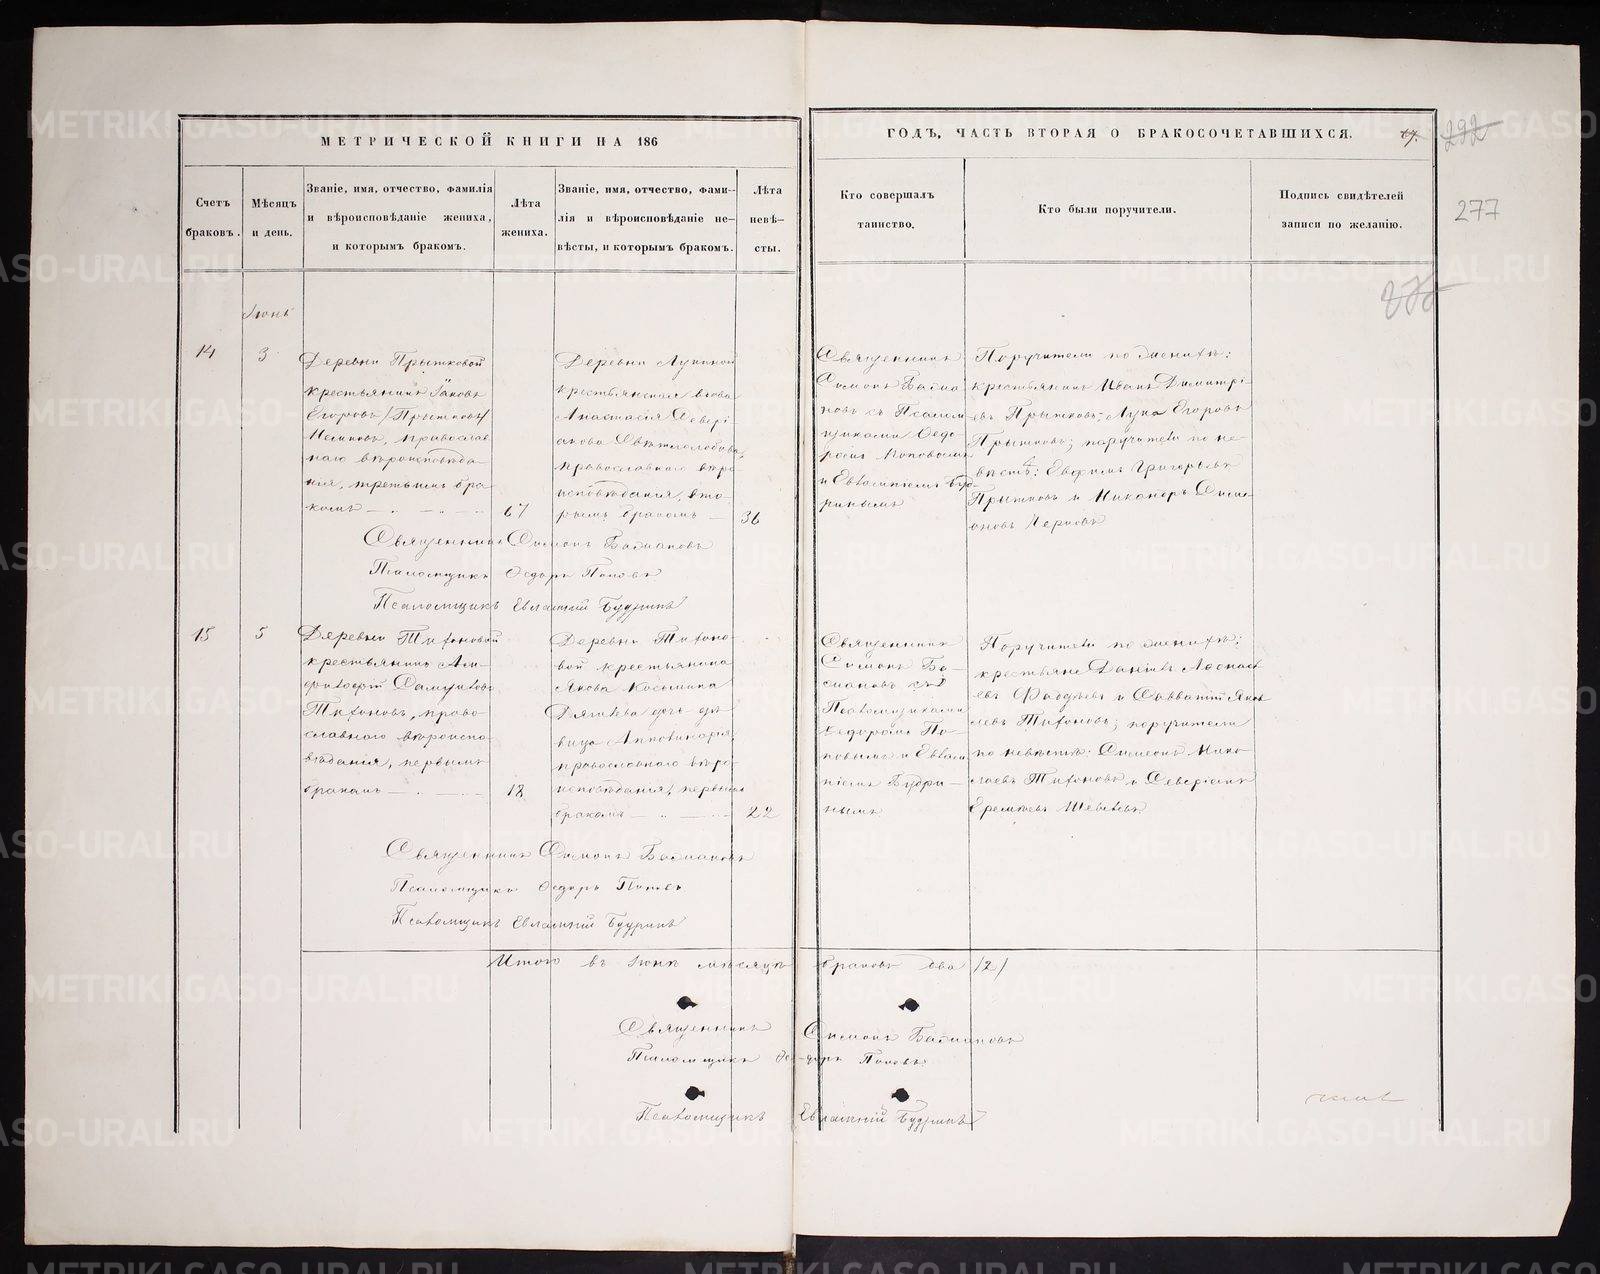 МЕТРИЧЕСКОЙ КНИГИ НА 186
ГОДЪ, ЧАСТЬ ВТОРАЯ О БРАКОСОЧЕТАВШИХСЯ.
292
277
Счетъ браковъ.
Мѣсяцъ и день.
Званіе, имя, отчество, фамилія
и вѣроисповѣданіе жениха,
и которымъ бракомъ.
Лѣта
жениха.
Званіе, имя, отчество, фами-
лія и вѣроисповѣданіе не-
вѣсты, и которымъ бракомъ.
Лѣта
невѣ-
сты.
Кто совершалъ
таинство.
Кто были поручители.
Подпись свидѣтелей
записи по желанію.
Іюнь
14
3
Деревни Прытковой
крестьянинъ Іаковъ
Егоровъ /Прытковъ/
православ
наго вѣроисповѣда-
нія, третьимъ бра-
комъ
67
Деревни Лукиной
крестьянская вдова
Анастасія Севері-
анова
православнаго вѣро
исповѣданія, вто-
рымъ бракомъ
36
Священникъ
Симонъ Басма
новъ съ Псалом
щиками Ѳедо-
ромъ Поповымъ
и Евлампіемъ Буд-
ринымъ
Поручители по женихѣ:
крестьянинъ Иванъ Димитрі-
евъ Прытковъ; Лука Егоровъ
Прытковъ; поручители по не-
вѣстѣ: Евфимъ Григорьевъ
Прытковъ и Никаноръ Симе-
оновъ
Священникъ Симонъ Басмановъ
Псаломщикъ Ѳедоръ Поповъ
Псаломщикъ Евлампій Будринъ
15
5
Деревни Тифоновой
крестьянинъ
Самуиловъ
Тифоновъ, право-
славнаго вѣроиспо-
вѣданія, первымъ
бракомъ
18
Деревни Тифоно-
вой крестьянина
Якова Косьмина
дочь дѣ-
вица Апполинарія,
православнаго вѣро-
исповѣданія, первымъ
бракомъ
22
Священникъ
Симонъ Ба-
смановъ съ
Псаломщиками
Ѳедоромъ По-
повымъ и Евлам
піемъ Будри-
нымъ
Поручители по женихѣ:
крестьяне Даніилъ Аѳанась
евъ и Савватій Яков
левъ Тифоновъ; поручители
по невѣстѣ: Симеонъ Нико-
лаевъ Тифоновъ и Северіанъ
Еремѣевъ
Священникъ Симонъ Басмановъ
Псаломщикъ Ѳедоръ Поповъ
Псаломщикъ Евлампій Будринъ
Итого въ Іюнѣ мѣсяцѣ браковъ два /2/
Священникъ Симонъ Басмановъ
Псаломщикъ Ѳедоръ Поповъ
Псаломщикъ Евлампій Будринъ
METRIKI.GASO-URAL.RU